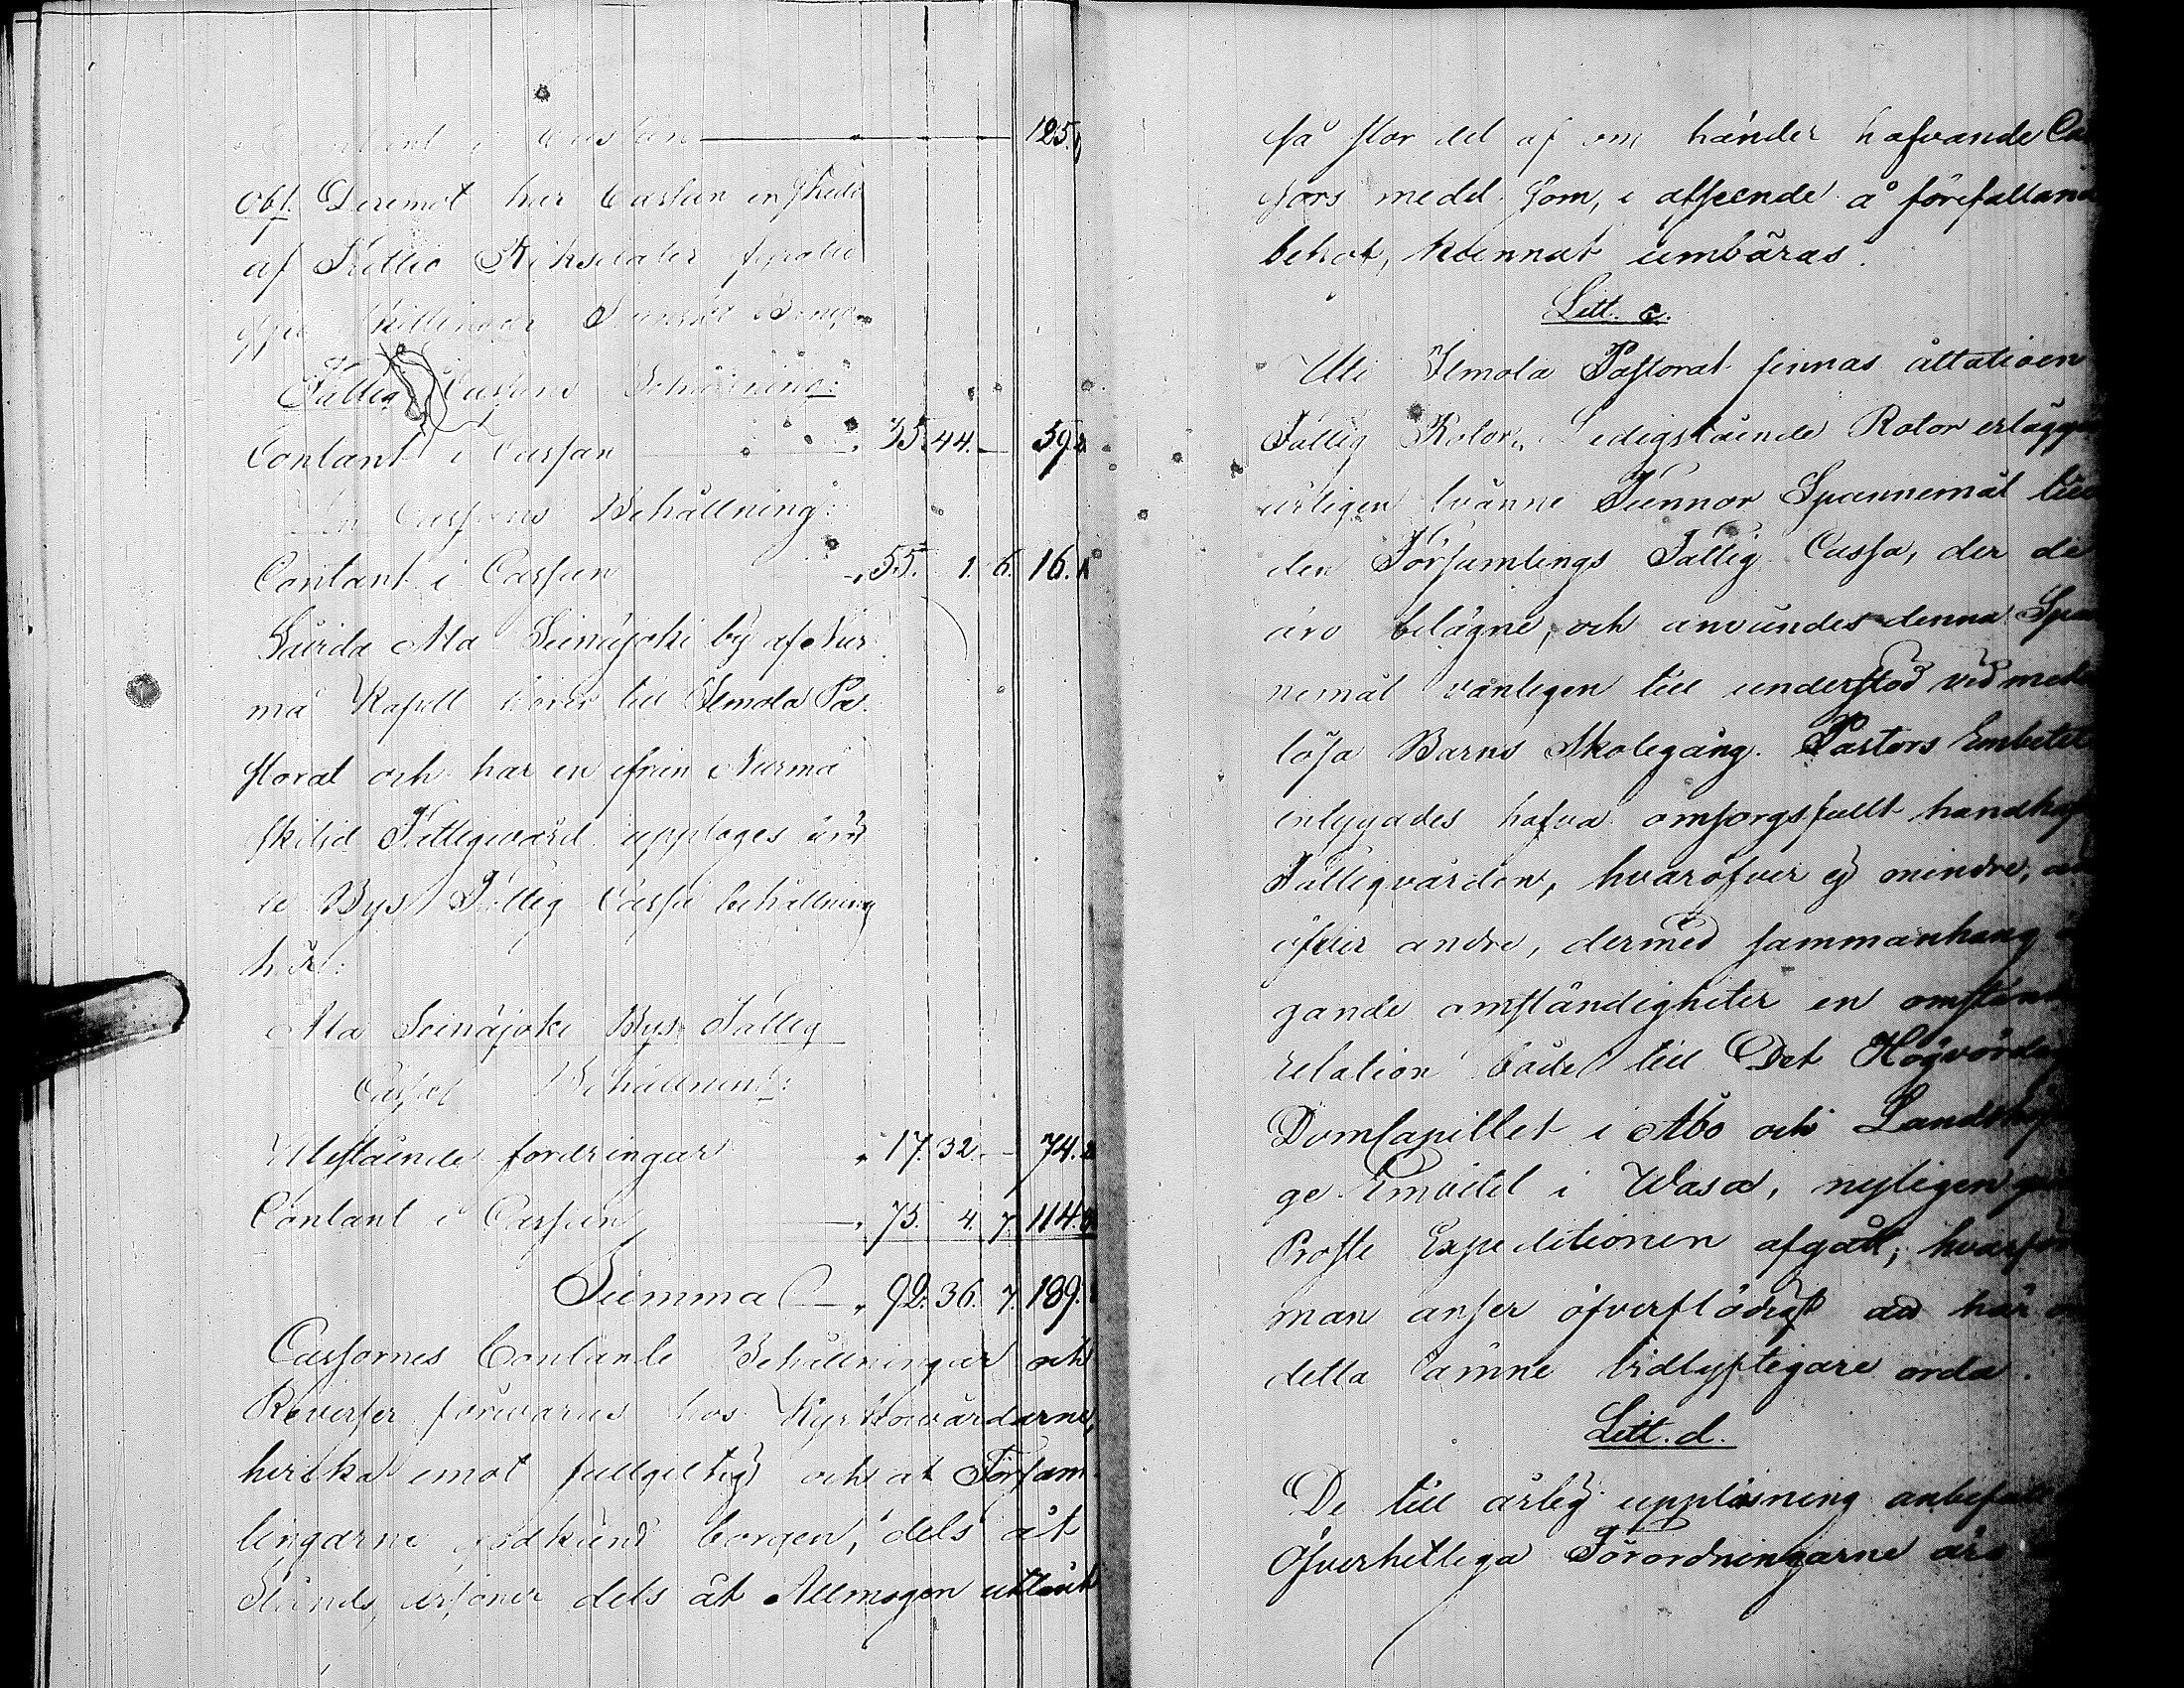 Contant i Cassan 125.
Obs. Deremot har Cassan en skuld
af Trettio Riksdaler fyratio
Skillingar Svenskt
Fattig Cassans Behållning:
Contant i Cassan 35. 44. — 59.
Cassans Behållning:
Contant i Cassan 55. 1. 6. 16.
Ala Seinäjoki by af Nur-
mo Kapell hörer till Ilmola Pa-
storat och har en ifrån Nurmo
skiljd Fattigvård upptages
de Bys Fattig Cassa behållning
här:
Ala Seinäjoki Bys Fattig
Cassas Behållning:
Utestående fordringar 17. 32. — 74.
Contant i Cassan 75. 4. 7. 114.
Summa 92. 36. 7. 189.
Cassornes Contante Behållningar och
Reverser förvaras hos Kyrkovärdarne,
hvilka emot fullgiltig och af Försam-
lingarne godkänd borgen, dels åt
Stånds personer dels åt Allmogen utlånt
så stor del af om händer hafvande Ca
sors medel som, i afseende å förefallan
behof, kunnat umbäras.
Litt. c.
Uti Ilmola Pastorat finnas åttatioen
Fattig Rotor. Ledigstående Rotor erlägga
årligen tvänne Tunnor Spannemål till
den Församlings Fattig Cassa, der de
äro belägne, och användes denna Span
nemål vanligen till understöd vid medel
lösa Barns Skolegång. Pastors Embetet
inlygades hafva omsorgsfullt handhaf
Fattigvården, hvaröfver ej mindre, än
öfver andre, dermed sammanhang
gande omständigheter en omständ
relation både till Det Högvördig
DomCapillet i Åbo och Landshöf
ge Embetet i Wasa, nyligen
Proste Expeditionen afgått; hvarför
man anser öfverflödigt att här om
detta ämne vidlyftigare orda.
Litt. d.
De till årlig uppläsning anbefall
Öfverhetliga Förordningarne äro